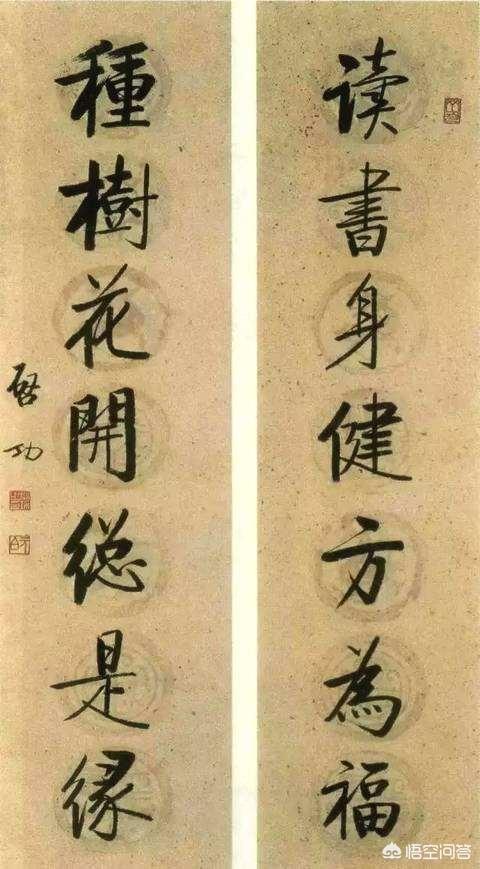 读書身健方為福
種樹花開総是缘
啓功
悟空问答